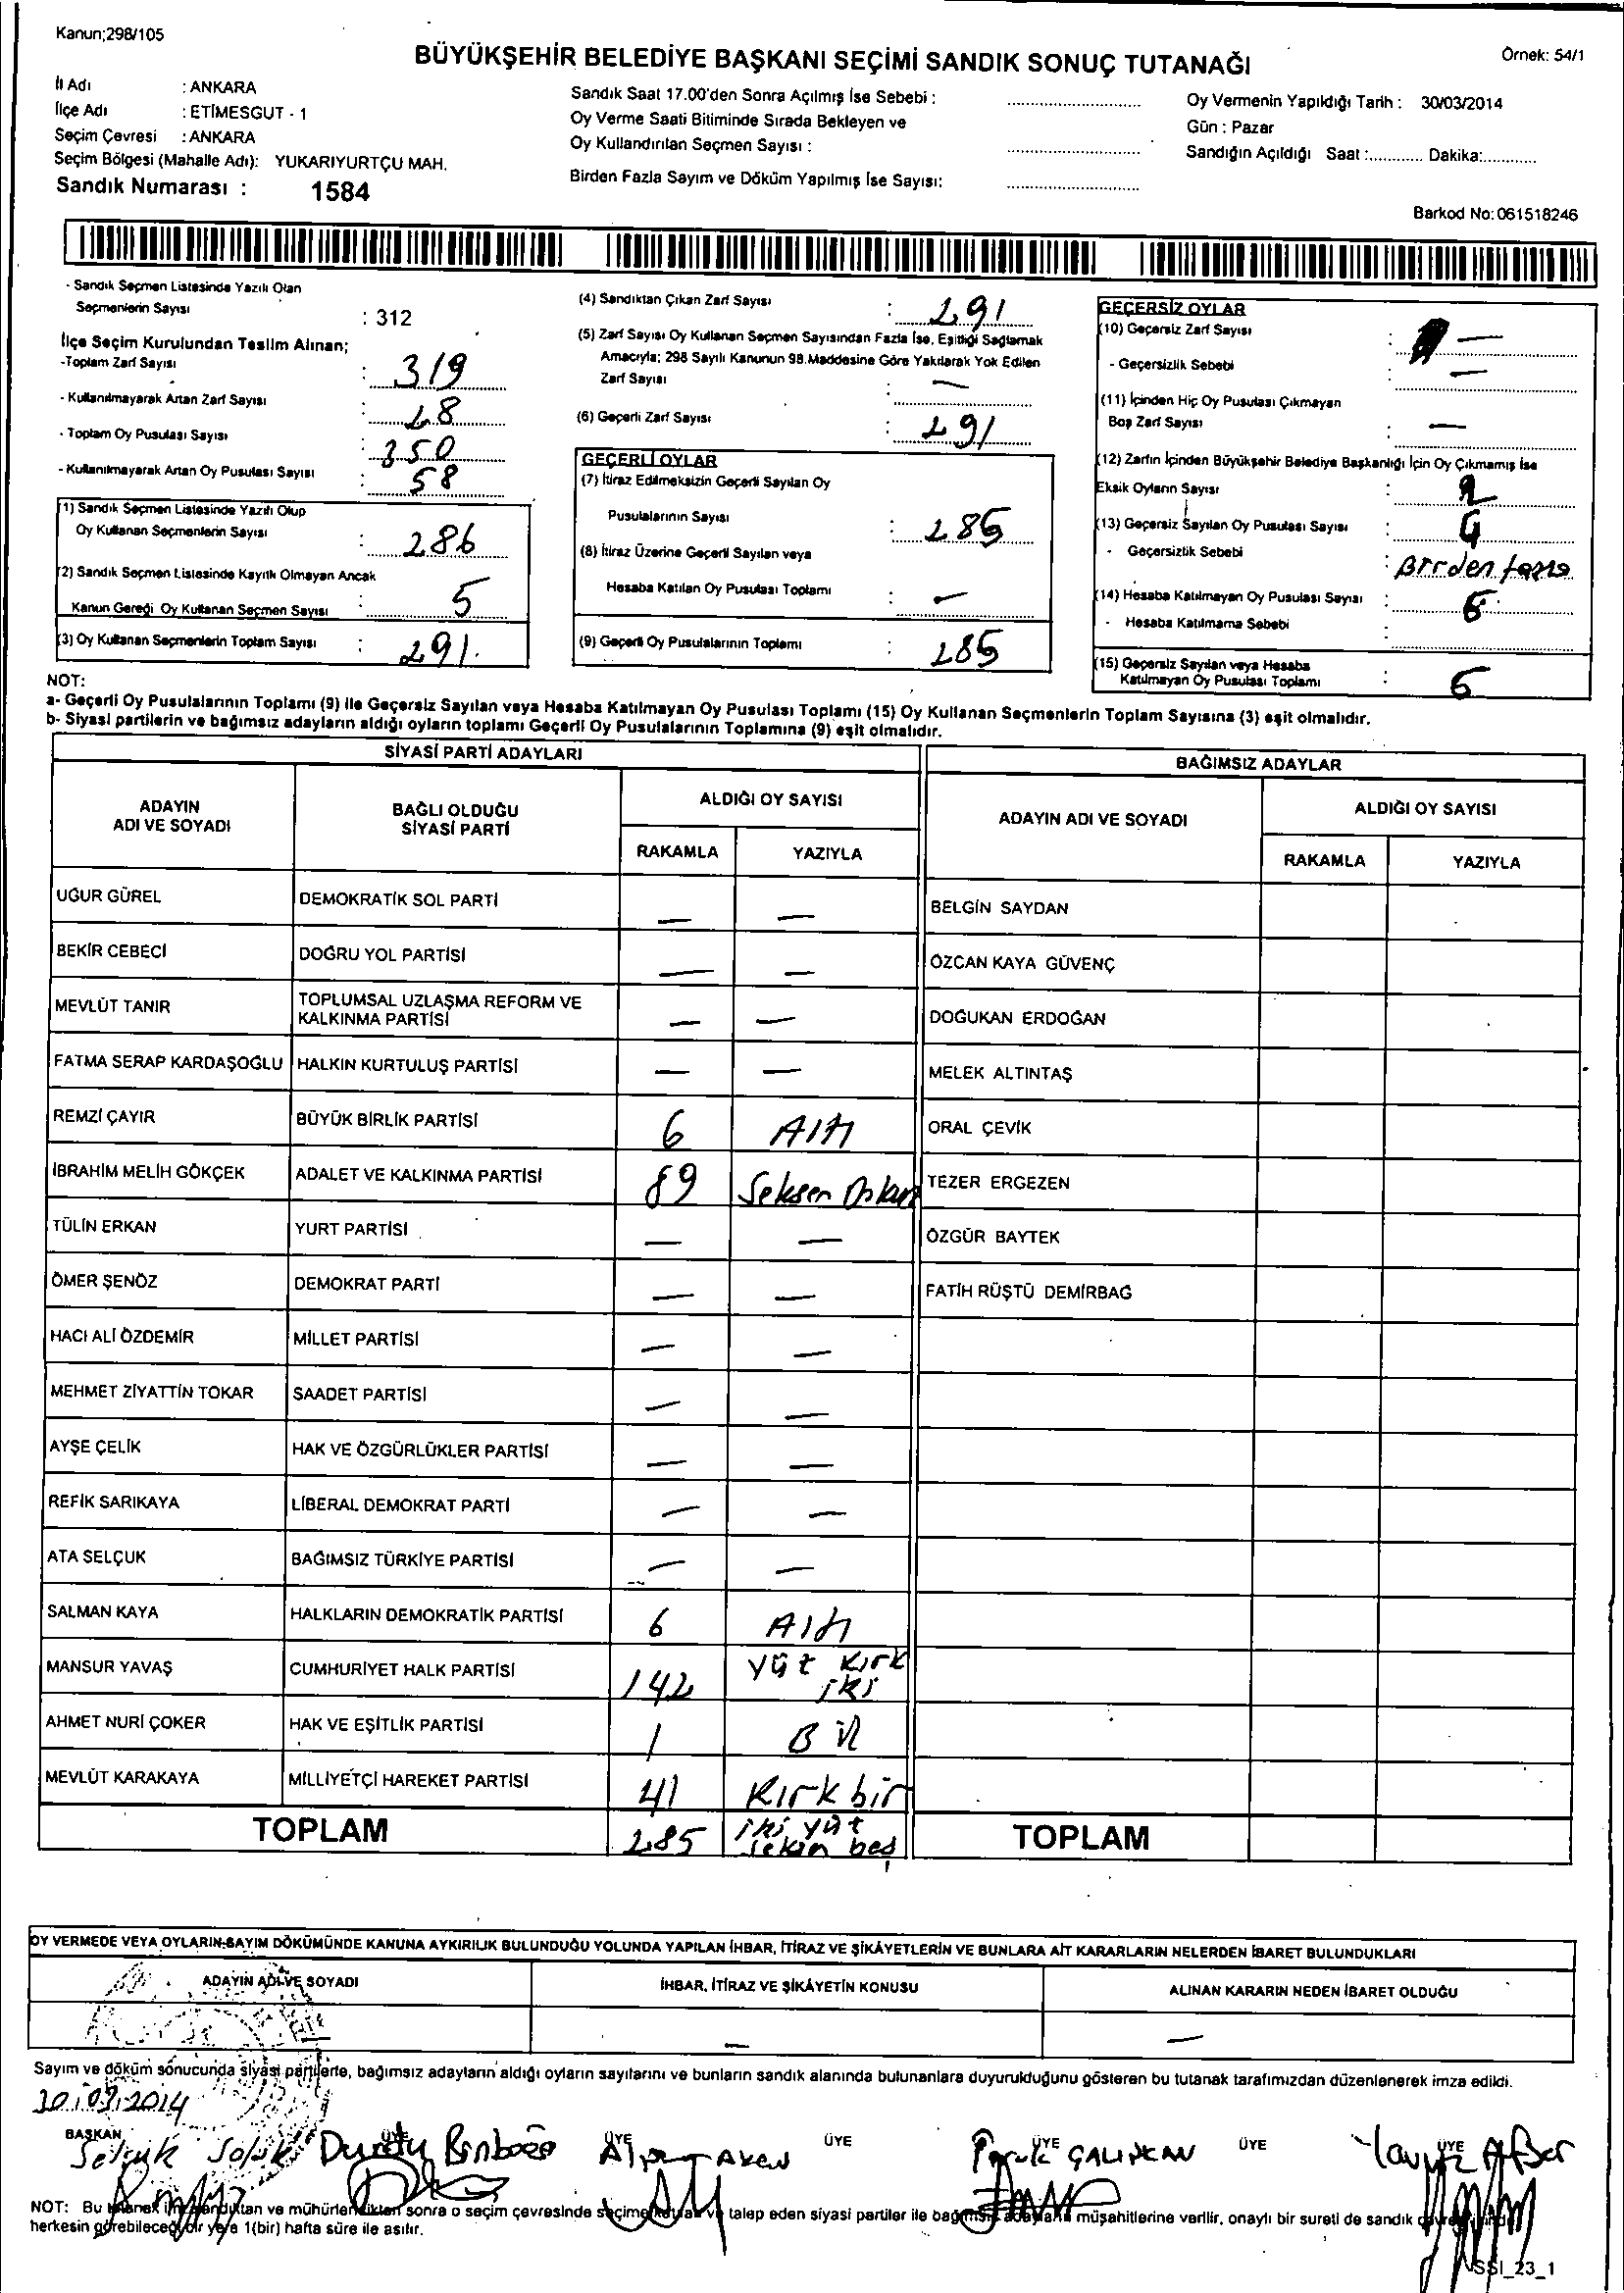 Kanun;298/105
BÜYÜKŞEHİR BELEDİYE BAŞKANI SEÇİMİ SANDIK SONUÇ TUTANAĞI
Örnek: 54/1
İl Adı : ANKARA
İlçe Adı : ETİMESGUT - 1
Seçim Çevresi : ANKARA
Seçim Bölgesi (Mahalle Adı): YUKARIYURTÇU MAH.
Sandık Numarası : 1584
Sandık Saat 17.00'den Sonra Açılmış İse Sebebi :
Oy Verme Saati Bitiminde Sırada Bekleyen ve
Oy Kullandırılan Seçmen Sayısı :
Birden Fazla Sayım ve Döküm Yapılmış İse Sayısı:
Oy Vermenin Yapıldığı Tarih : 30/03/2014
Gün : Pazar
Sandığın Açıldığı Saat :............ Dakika:............
Barkod No: 061518246
- Sandık Seçmen Listesinde Yazılı Olan
Seçmenlerin Sayısı : 312
İlçe Seçim Kurulundan Teslim Alınan;
-Toplam Zarf Sayısı : 319
- Kullanılmayarak Artan Zarf Sayısı : 28
- Toplam Oy Pusulası Sayısı : 350
- Kullanılmayarak Artan Oy Pusulası Sayısı : 58
(1) Sandık Seçmen Listesinde Yazılı Olup
Oy Kullanan Seçmenlerin Sayısı : 286
(2) Sandık Seçmen Listesinde Kayıtlı Olmayan Ancak
Kanun Gereği Oy Kullanan Seçmen Sayısı : 5
(3) Oy Kullanan Seçmenlerin Toplam Sayısı : 291
(4) Sandıktan Çıkan Zarf Sayısı : 291
(5) Zarf Sayısı Oy Kullanan Seçmen Sayısından Fazla İse, Eşitliği Sağlamak
Amacıyla; 298 Sayılı Kanunun 98.Maddesine Göre Yakılarak Yok Edilen
Zarf Sayısı : —
(6) Geçerli Zarf Sayısı : 291
GEÇERLİ OYLAR
(7) İtiraz Edilmeksizin Geçerli Sayılan Oy
Pusulalarının Sayısı : 285
(8) İtiraz Üzerine Geçerli Sayılan veya
Hesaba Katılan Oy Pusulası Toplamı : —
(9) Geçerli Oy Pusulalarının Toplamı : 285
GEÇERSİZ OYLAR
(10) Geçersiz Zarf Sayısı : —
- Geçersizlik Sebebi : —
(11) İçinden Hiç Oy Pusulası Çıkmayan
Boş Zarf Sayısı : —
(12) Zarfın İçinden Büyükşehir Belediye Başkanlığı İçin Oy Çıkmamış İse
Eksik Oyların Sayısı : 2
(13) Geçersiz Sayılan Oy Pusulası Sayısı : 4
- Geçersizlik Sebebi : Birden fazla
(14) Hesaba Katılmayan Oy Pusulası Sayısı : 6
- Hesaba Katılmama Sebebi :
(15) Geçersiz Sayılan veya Hesaba
Katılmayan Oy Pusulası Toplamı : 6
NOT:
a- Geçerli Oy Pusulalarının Toplamı (9) ile Geçersiz Sayılan veya Hesaba Katılmayan Oy Pusulası Toplamı (15) Oy Kullanan Seçmenlerin Toplam Sayısına (3) eşit olmalıdır.
b- Siyasi partilerin ve bağımsız adayların aldığı oyların toplamı Geçerli Oy Pusulalarının Toplamına (9) eşit olmalıdır.
SİYASİ PARTİ ADAYLARI
ADAYIN ADI VE SOYADI BAĞLI OLDUĞU SİYASİ PARTİ ALDIĞI OY SAYISI
RAKAMLA YAZIYLA
UĞUR GÜREL DEMOKRATİK SOL PARTİ — —
BEKİR CEBECİ DOĞRU YOL PARTİSİ — —
MEVLÜT TANIR TOPLUMSAL UZLAŞMA REFORM VE KALKINMA PARTİSİ — —
FATMA SERAP KARDAŞOĞLU HALKIN KURTULUŞ PARTİSİ — —
REMZİ ÇAYIR BÜYÜK BİRLİK PARTİSİ 6 Altı
İBRAHİM MELİH GÖKÇEK ADALET VE KALKINMA PARTİSİ 89 Seksen Dokuz
TÜLİN ERKAN YURT PARTİSİ — —
ÖMER ŞENÖZ DEMOKRAT PARTİ — —
HACI ALİ ÖZDEMİR MİLLET PARTİSİ — —
MEHMET ZİYATTİN TOKAR SAADET PARTİSİ — —
AYŞE ÇELİK HAK VE ÖZGÜRLÜKLER PARTİSİ — —
REFİK SARIKAYA LİBERAL DEMOKRAT PARTİ — —
ATA SELÇUK BAĞIMSIZ TÜRKİYE PARTİSİ — —
SALMAN KAYA HALKLARIN DEMOKRATİK PARTİSİ 6 Altı
MANSUR YAVAŞ CUMHURİYET HALK PARTİSİ 142 yüz kırk iki
AHMET NURİ ÇOKER HAK VE EŞİTLİK PARTİSİ 1 Bir
MEVLÜT KARAKAYA MİLLİYETÇİ HAREKET PARTİSİ 41 Kırk bir
TOPLAM 285 iki yüz seksen beş
BAĞIMSIZ ADAYLAR
ADAYIN ADI VE SOYADI ALDIĞI OY SAYISI
RAKAMLA YAZIYLA
BELGİN SAYDAN
ÖZCAN KAYA GÜVENÇ
DOĞUKAN ERDOĞAN
MELEK ALTINTAŞ
ORAL ÇEVİK
TEZER ERGEZEN
ÖZGÜR BAYTEK
FATİH RÜŞTÜ DEMİRBAĞ
TOPLAM
OY VERMEDE VEYA OYLARIN SAYIM DÖKÜMÜNDE KANUNA AYKIRILIK BULUNDUĞU YOLUNDA YAPILAN İHBAR, İTİRAZ VE ŞİKÂYETLERİN VE BUNLARA AİT KARARLARIN NELERDEN İBARET BULUNDUKLARI
ADAYIN ADI VE SOYADI İHBAR, İTİRAZ VE ŞİKÂYETİN KONUSU ALINAN KARARIN NEDEN İBARET OLDUĞU
— — —
Sayım ve döküm sonucunda siyasi partilerle, bağımsız adayların aldığı oyların sayılarını ve bunların sandık alanında bulunanlara duyurulduğunu gösteren bu tutanak tarafımızdan düzenlenerek imza edildi.
30.03.2014
BAŞKAN ÜYE ÜYE ÜYE ÜYE ÜYE ÜYE
Selçuk
NOT: Bu tutanak imzalandıktan ve mühürlendikten sonra o seçim çevresinde seçime katılan ve talep eden siyasi partiler ile bağımsız adayların müşahitlerine verilir, onaylı bir sureti de sandık
herkesin görebileceği bir yere 1(bir) hafta süre ile asılır.
SSI_23_1